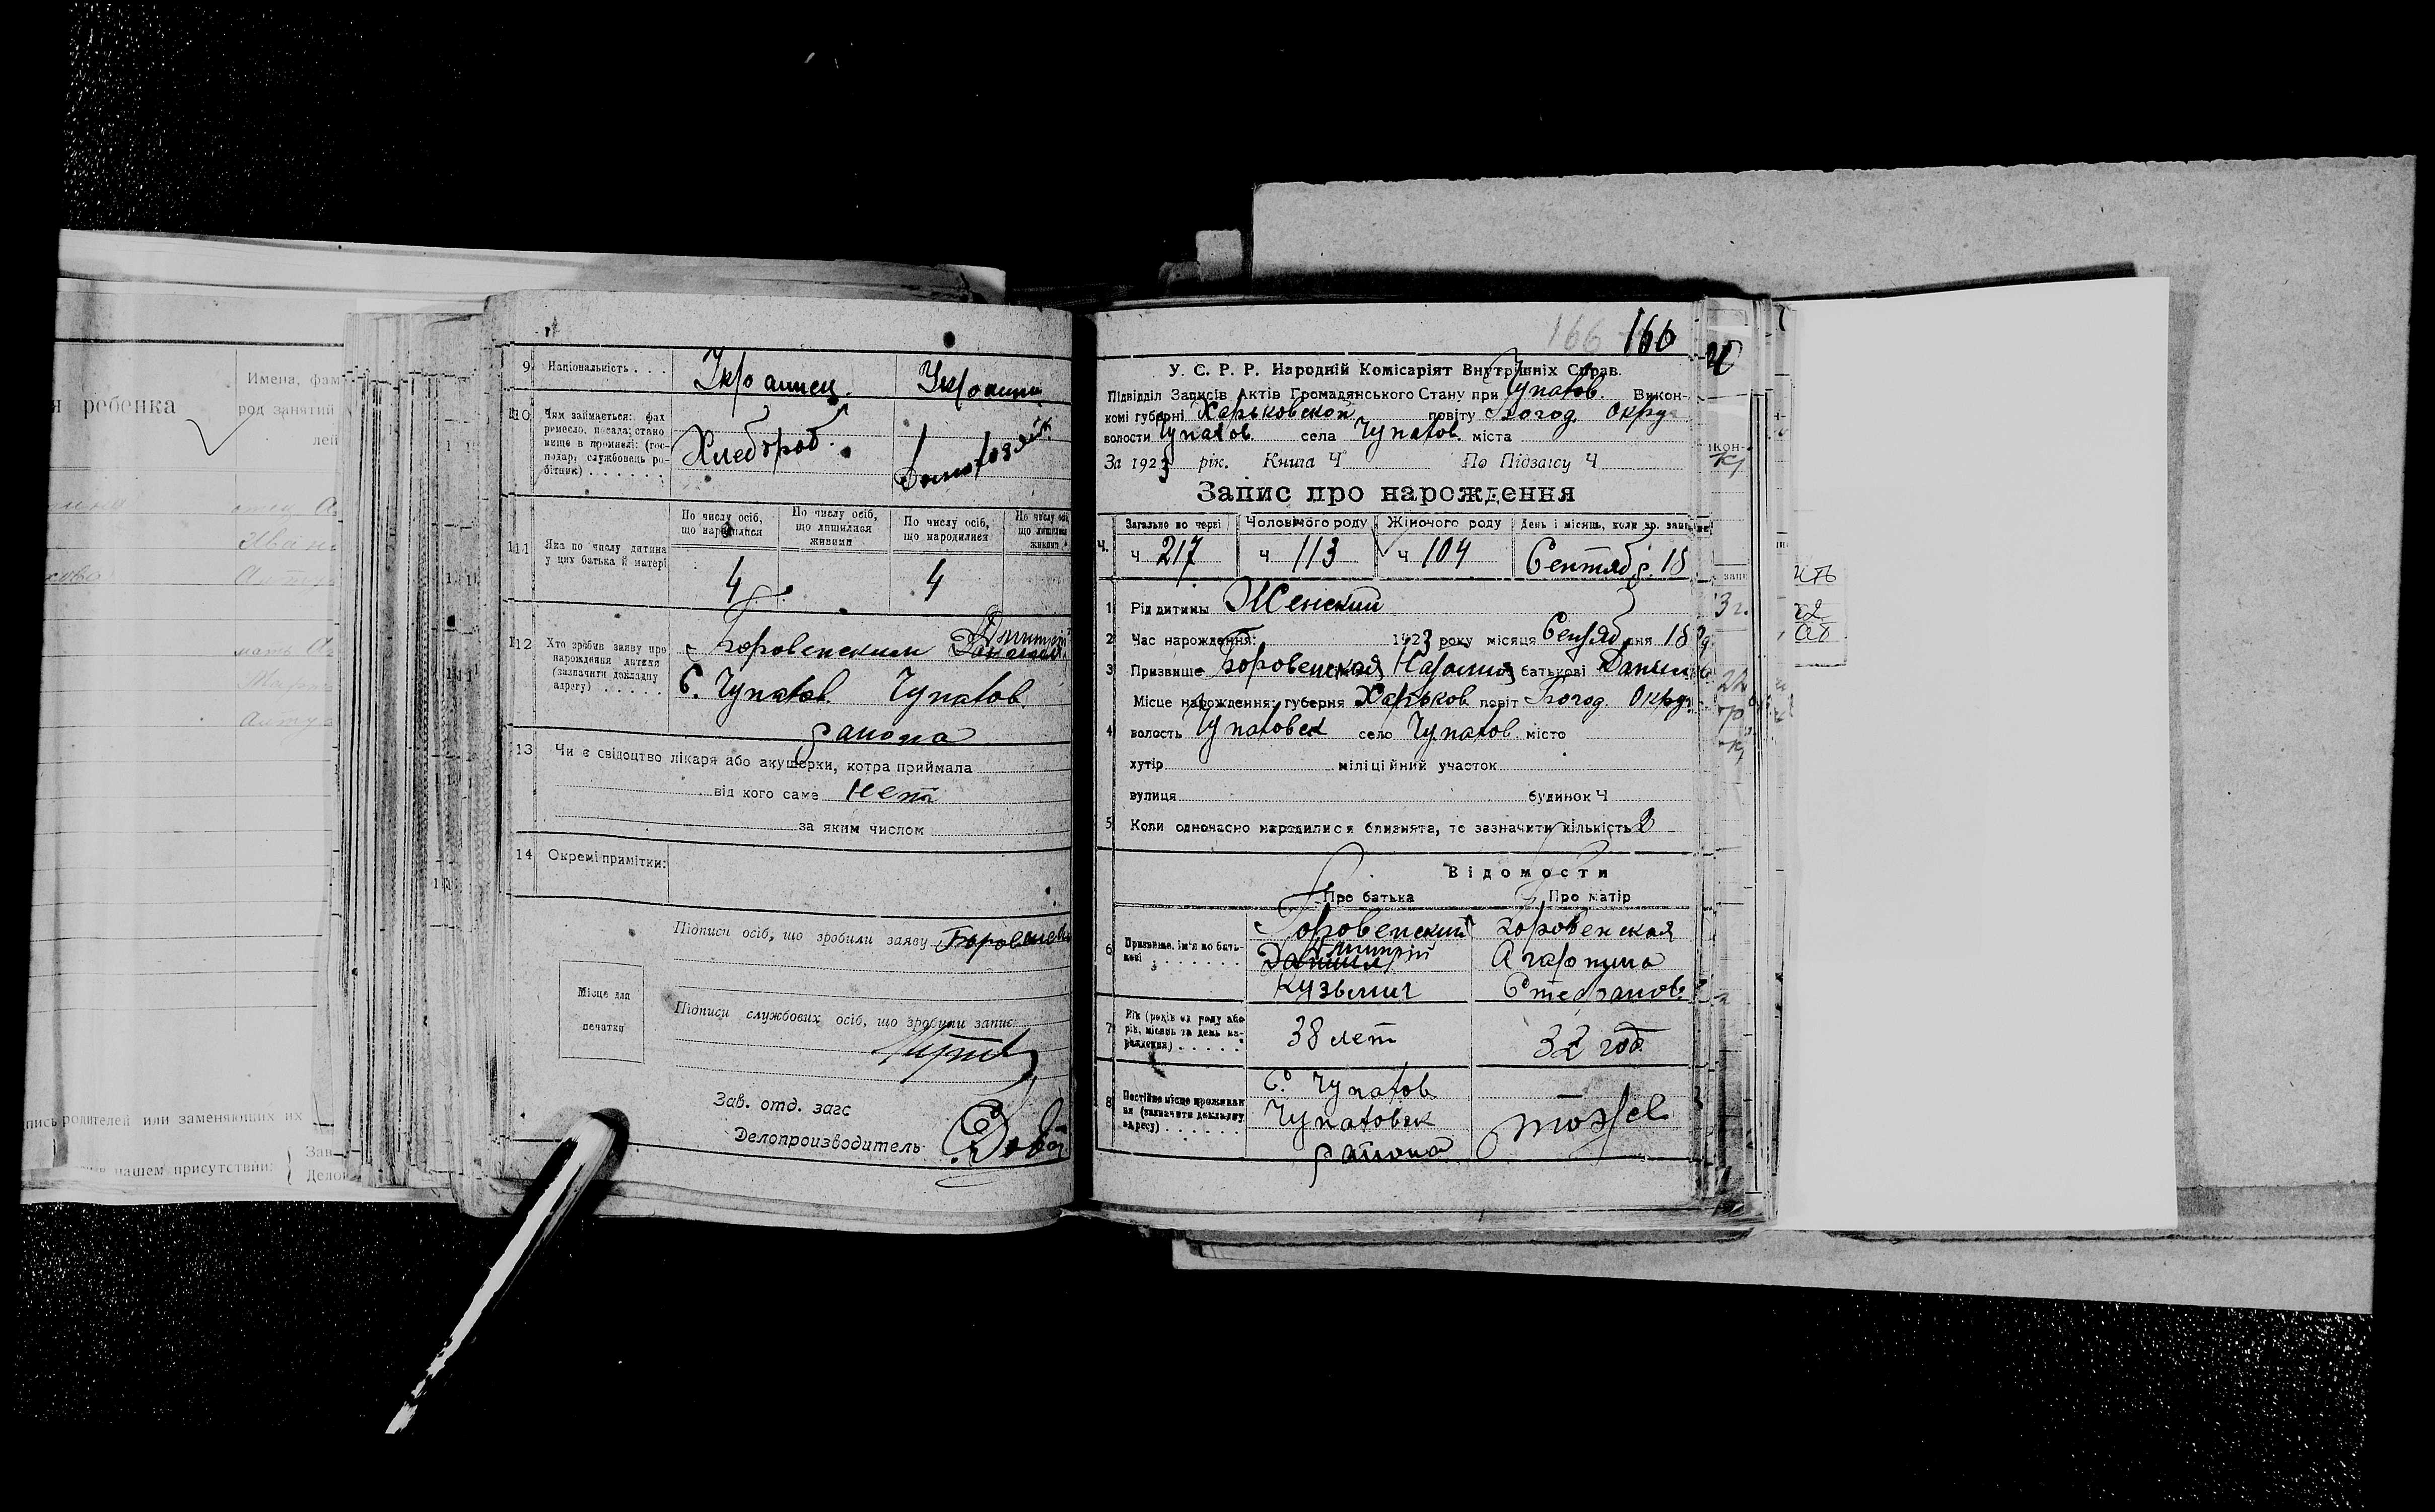 я ребенка
Имена, фам
род занятий
лей
Ивана
мать
пись родителей или заменяющих их
нашем присутствии:
Зав
Делоп
9 Національність . . . Украинец. Украин
10 Чим займається: фах
ремесло, посада; стано
вище в промислі: (гос-
подар, службовець ро-
бітник) . . . . . . Хлебороб. Домохозяйк
11 Яка по числу дитина
у цих батька й матері
По числу осіб,
що народилися
По числу осіб,
що лишилися
живими
По числу осіб,
що народилися
По числу осіб
що лишилися
живими
4 4
12 Хто зробив заяву про
нарождення дитини
(зазначити докладну
адресу) . . . . .
Боровенским Дмитрий
Даниил
С. Чупахов. Чупахов.
района
13 Чи є свідоцтво лікаря або акушерки, котра приймала
від кого саме Нет
за яким числом
14 Окремі примітки:
Підписи осіб, що зробили заяву Боровенск
Місце для
печатки
Підписи службових осіб, що зробили запис
Зав. отд. загс
Делопроизводитель
166 166
У. С. Р. Р. Народній Комісаріят Внутрішніх Справ.
Підвідділ Записів Актів Громадянського Стану при Чупахов. Викон-
комі губерні Харьковской повіту Богод. Окру
волости Чупахов. села Чупахов. міста
За 1923 рік. Книга Ч По Підзагсу Ч
Запис про нарождення
Ч. Загально по черзі Чоловічого роду Жіночого роду День і місяць, коли зр. запис
Ч 217 Ч 113 Ч 104 Сентябр. 18
1 Рід дитини Женский
2 Час нарождення: 1923 року місяця Сентяб дня 18
3 Призвище Боровенская батькові Данил
Місце нарождення: губерня Харьков повіт Богод. Окру
4 волость Чупаховск село Чупахов. місто
хутір міліційний участок
вулиця будинок Ч
5 Коли одночасно народилися близнята, то зазначити кількість 2
Відомости
Про батька Про матір
6 Призвище, ім'я по бать-
кові . . . . . . .
Боровенский Боровенская
Дмитрий
Даниил Агафтина
Кузьмич Стефанов.
7 Рік (років од роду або
рік, місяць та день на-
рождення) . . . . . 38 лет 32 год.
8 Постійне місце проживан
ня (зазначити докладну
адресу) . . . . . .
С. Чупахов
Чупаховск
района
икон-